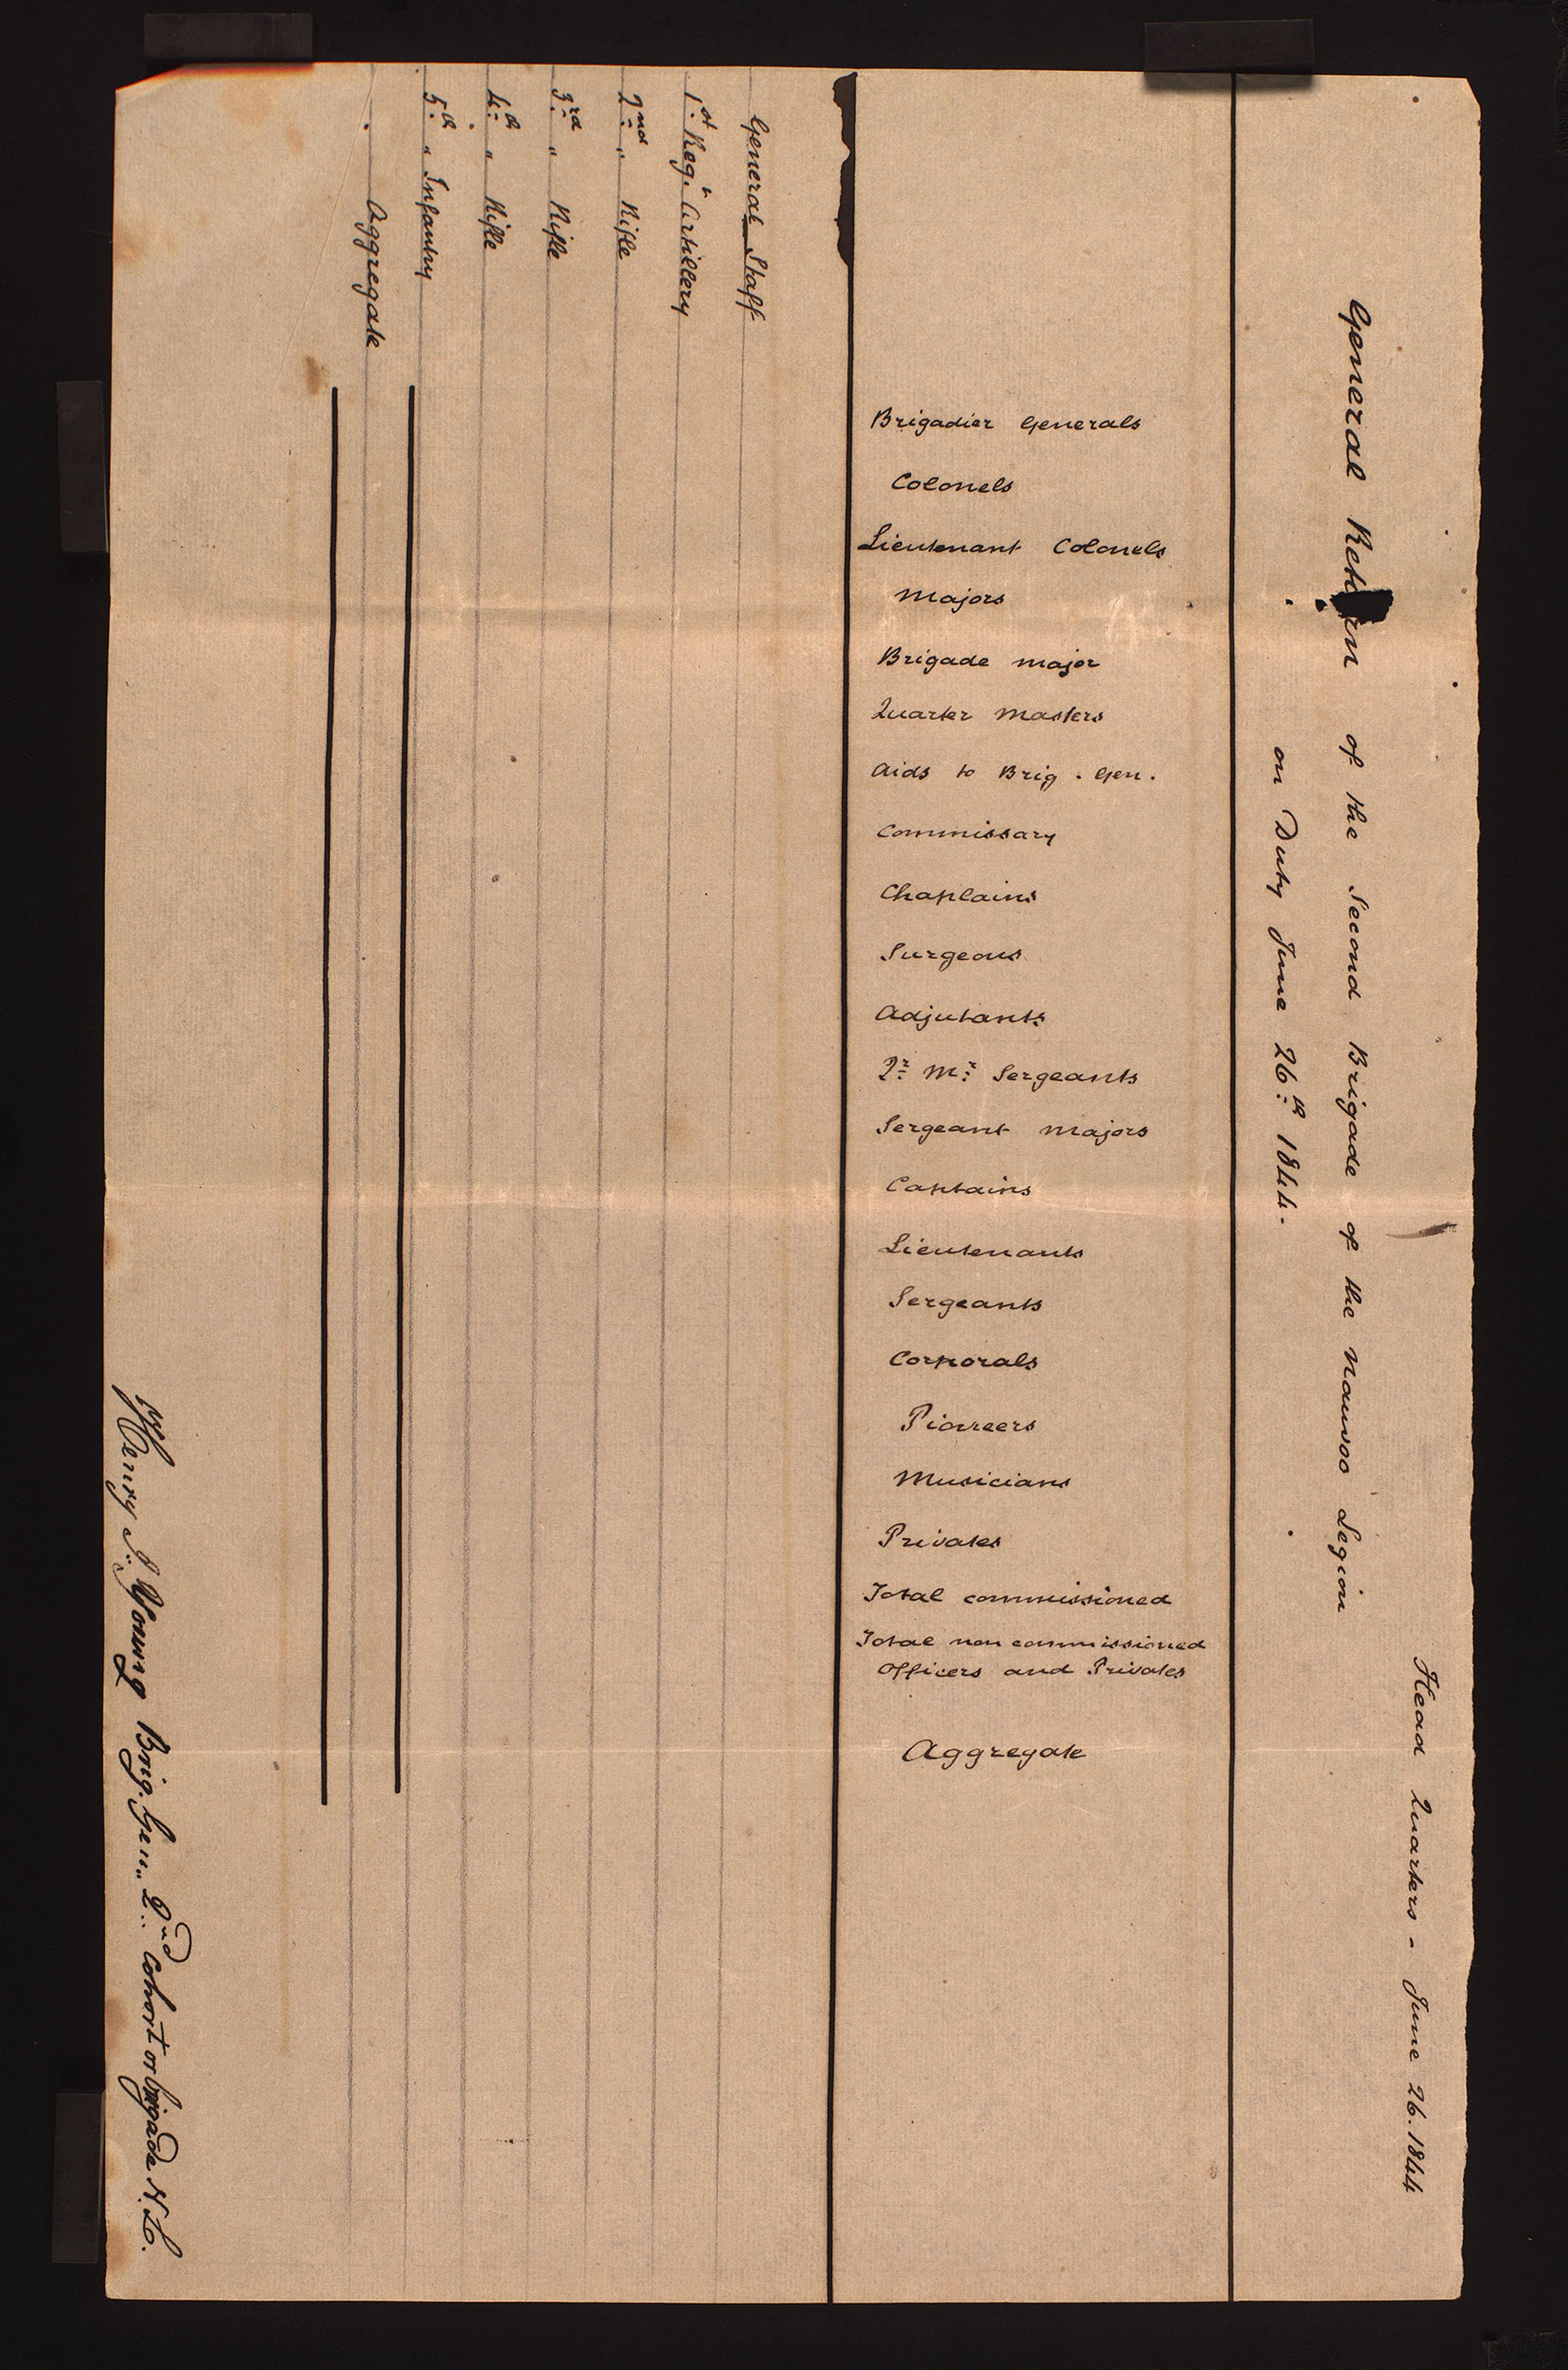 Head Quarters - June 26. 1844
General Return of the Second Brigade of the Nauvoo Legion
on Duty June 26th 1844.
Brigadier Generals
Colonels
Lieutenant Colonels
Majors
Brigade major
Quarter Masters
Aids to Brig. Gen.
Commissary
Chaplains
Surgeons
Adjutants
Qr Mr Sergeants
Sergeant Majors
Captains
Lieutenants
Sergeants
Corporals
Pioneers
Musicians
Privates
Total commissioned
Total non commissioned
Officers and Privates
Aggregate
General Staff
1st Regt Artillery
2nd " Rifle
3rd " Rifle
4th " Rifle
5th " Infantry
Aggregate
Henry S. Young Brig. Gen. 2nd Cohort or brigade N.L.